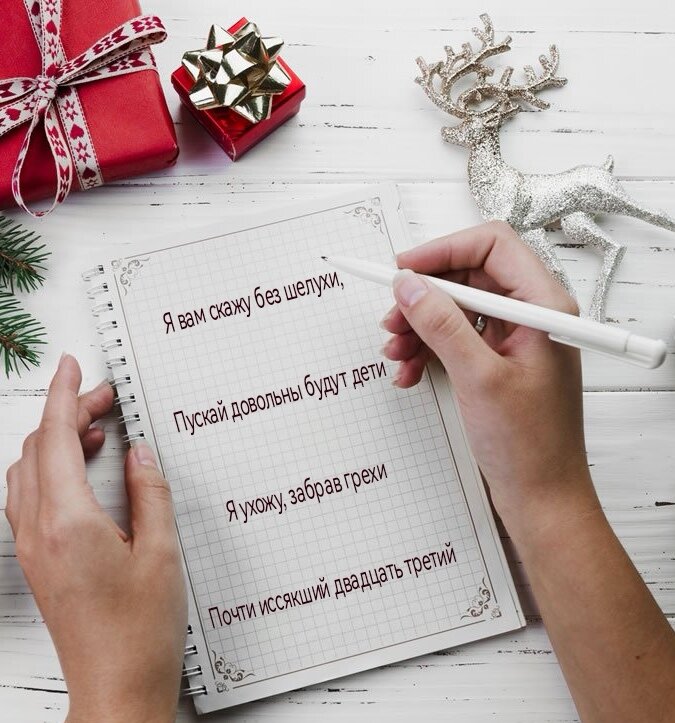 Я вам скажу без шелухи,
Пускай довольны будут дети
Я ухожу, забрав грехи
Почти иссякший двадцать третий